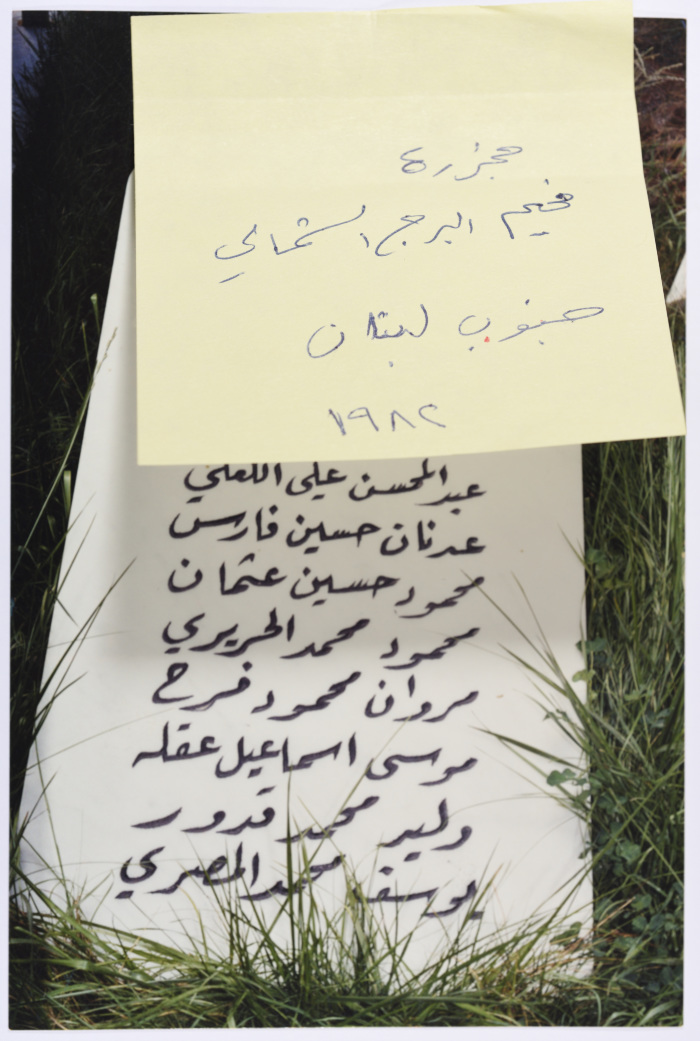 مجزرة
مخيم البرج الشمالي
جنوب لبنان
١٩٨٢
عبد المحسن علي اللعلي
عدنان حسين فارس
محمود حسين عثمان
محمود محمد الحريري
مروان محمود فرح
موسى اسماعيل عقله
وليد محمد قدور
يوسف محمد المصري